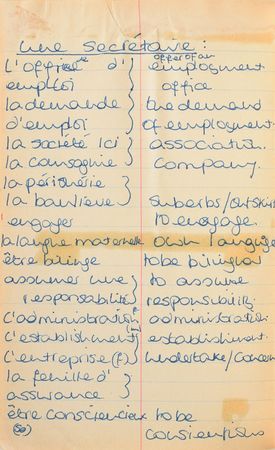 une secrétaire :
L'offre d' } offer of an employment
emploi office
la demande } the demand
d'emploi of employment
la société ici } association
la compagnie company.
la périphérie }
la banlieue suburbs/outskirts
engager to engage.
la langue maternelle own language
être bilinge to be bilingual
assumer une } to assume
responsabilité responsibility
l'administration administration
l'establishment establishment
l'entreprise (f) undertake/concern
la feuille d' }
assurance
être consciencieux to be
consientious